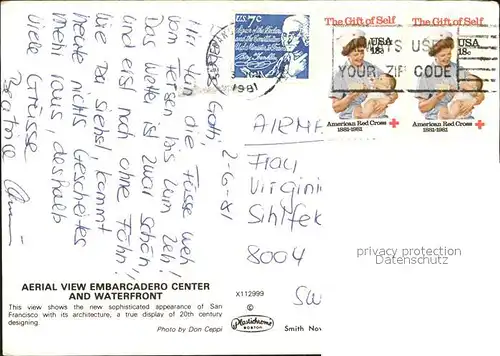 Liebes Gotti, 2-6-81
Mir tün die Füsse weh
vom Fersen bis zum Zeh!
Das Wetter ist zwar schön,
und erst noch ohne Föhn!
Wie Du siehst, kommt
heute nichts Gescheites
mehr raus, deshalb
viele Grüsse
AERIAL VIEW EMBARCADERO CENTER
AND WATERFRONT
This view shows the new sophisticated appearance of San
Francisco with its architecture, a true display of 20th century
designing.
Photo by Don Ceppi
U.S. 7c
1981
The Gift of Self
USA
18c
American Red Cross
1881-1981
The Gift of Self
USA
18c
American Red Cross
1881-1981
YOUR ZIP CODE
AIRMA
Frau
Virgini
Sihlfel
8004
SW
privacy protection
Datenschutz
X112999
©
Plastichrome
BOSTON
Smith Nov